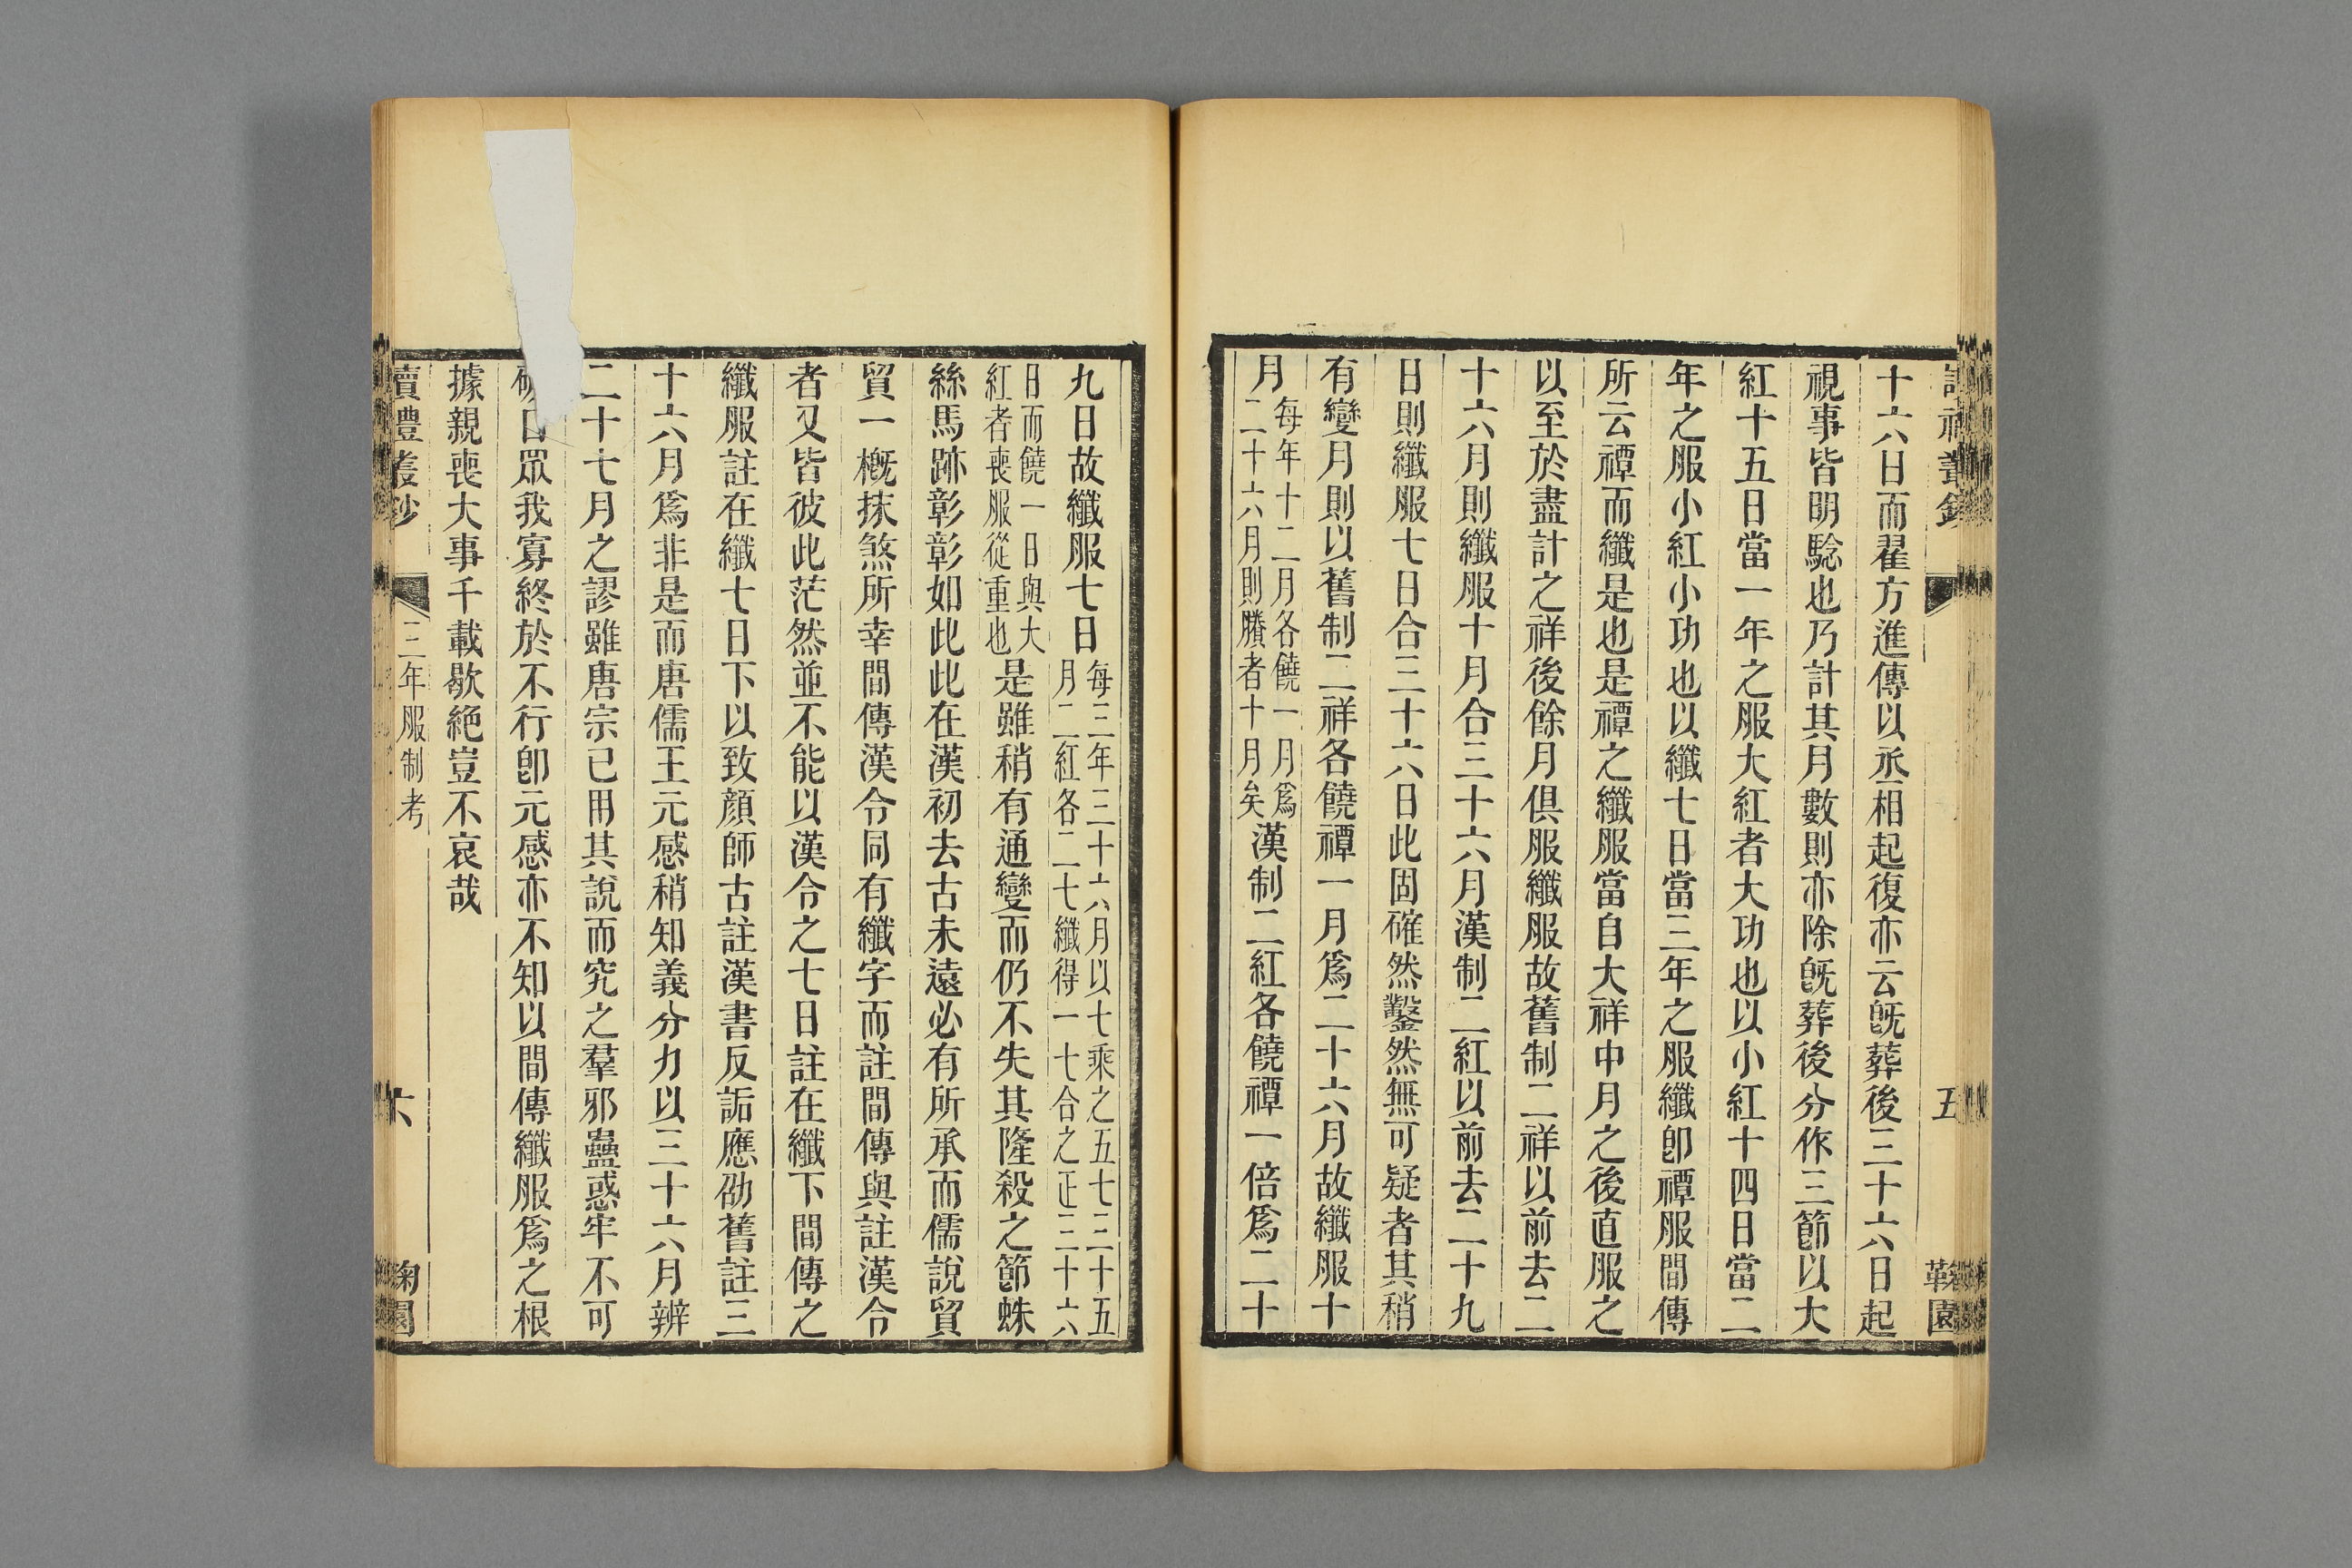 十六日而翟方進傳以丞相起復亦云旣葬後三十六日起
視事皆明騐也乃計其月數則亦除旣葬後分作三節以大
紅十五日當一年之服大紅者大功也以小紅十四日當二
年之服小紅小功也以纖七日當三年之服纖卽禫服間傳
所云禫而纖是也是禫之纖服當自大祥中月之後直服之
以至於盡計之祥後餘月俱服纖服故舊制二祥以前去二
十六月則纖服十月合三十六月漢制二紅以前去二十九
日則纖服七日合三十六日此固確然鑿然無可疑者其稍
有變月則以舊制二祥各饒禫一月爲二十六月故纖服十
月
每年十二月各饒一月爲
二十六月則賸者十月矣
漢制二紅各饒禫一倍爲二十
五
鞠園
九日故纖服七日
每三年三十六月以七乘之五七三十五
月二紅各二七纖得一七合之正三十六
日而饒一日與大
紅者喪服從重也
是雖稍有通變而仍不失其隆殺之節蛛
絲馬跡彰彰如此此在漢初去古未遠必有所承而儒說貿
貿一概抹煞所幸間傳漢令同有纖字而註間傳與註漢令
者又皆彼此茫然並不能以漢令之七日註在纖下間傳之
纖服註在纖七日下以致顔師古註漢書反詬應劭舊註三
十六月爲非是而唐儒王元感稍知義分力以三十六月辨
二十七月之謬雖唐宗已用其說而究之羣邪蠱惑牢不可
口眾我寡終於不行卽元感亦不知以間傳纖服爲之根
據親喪大事千載歇絕豈不哀哉
讀禮叢鈔
三年服制考
六
鞠園